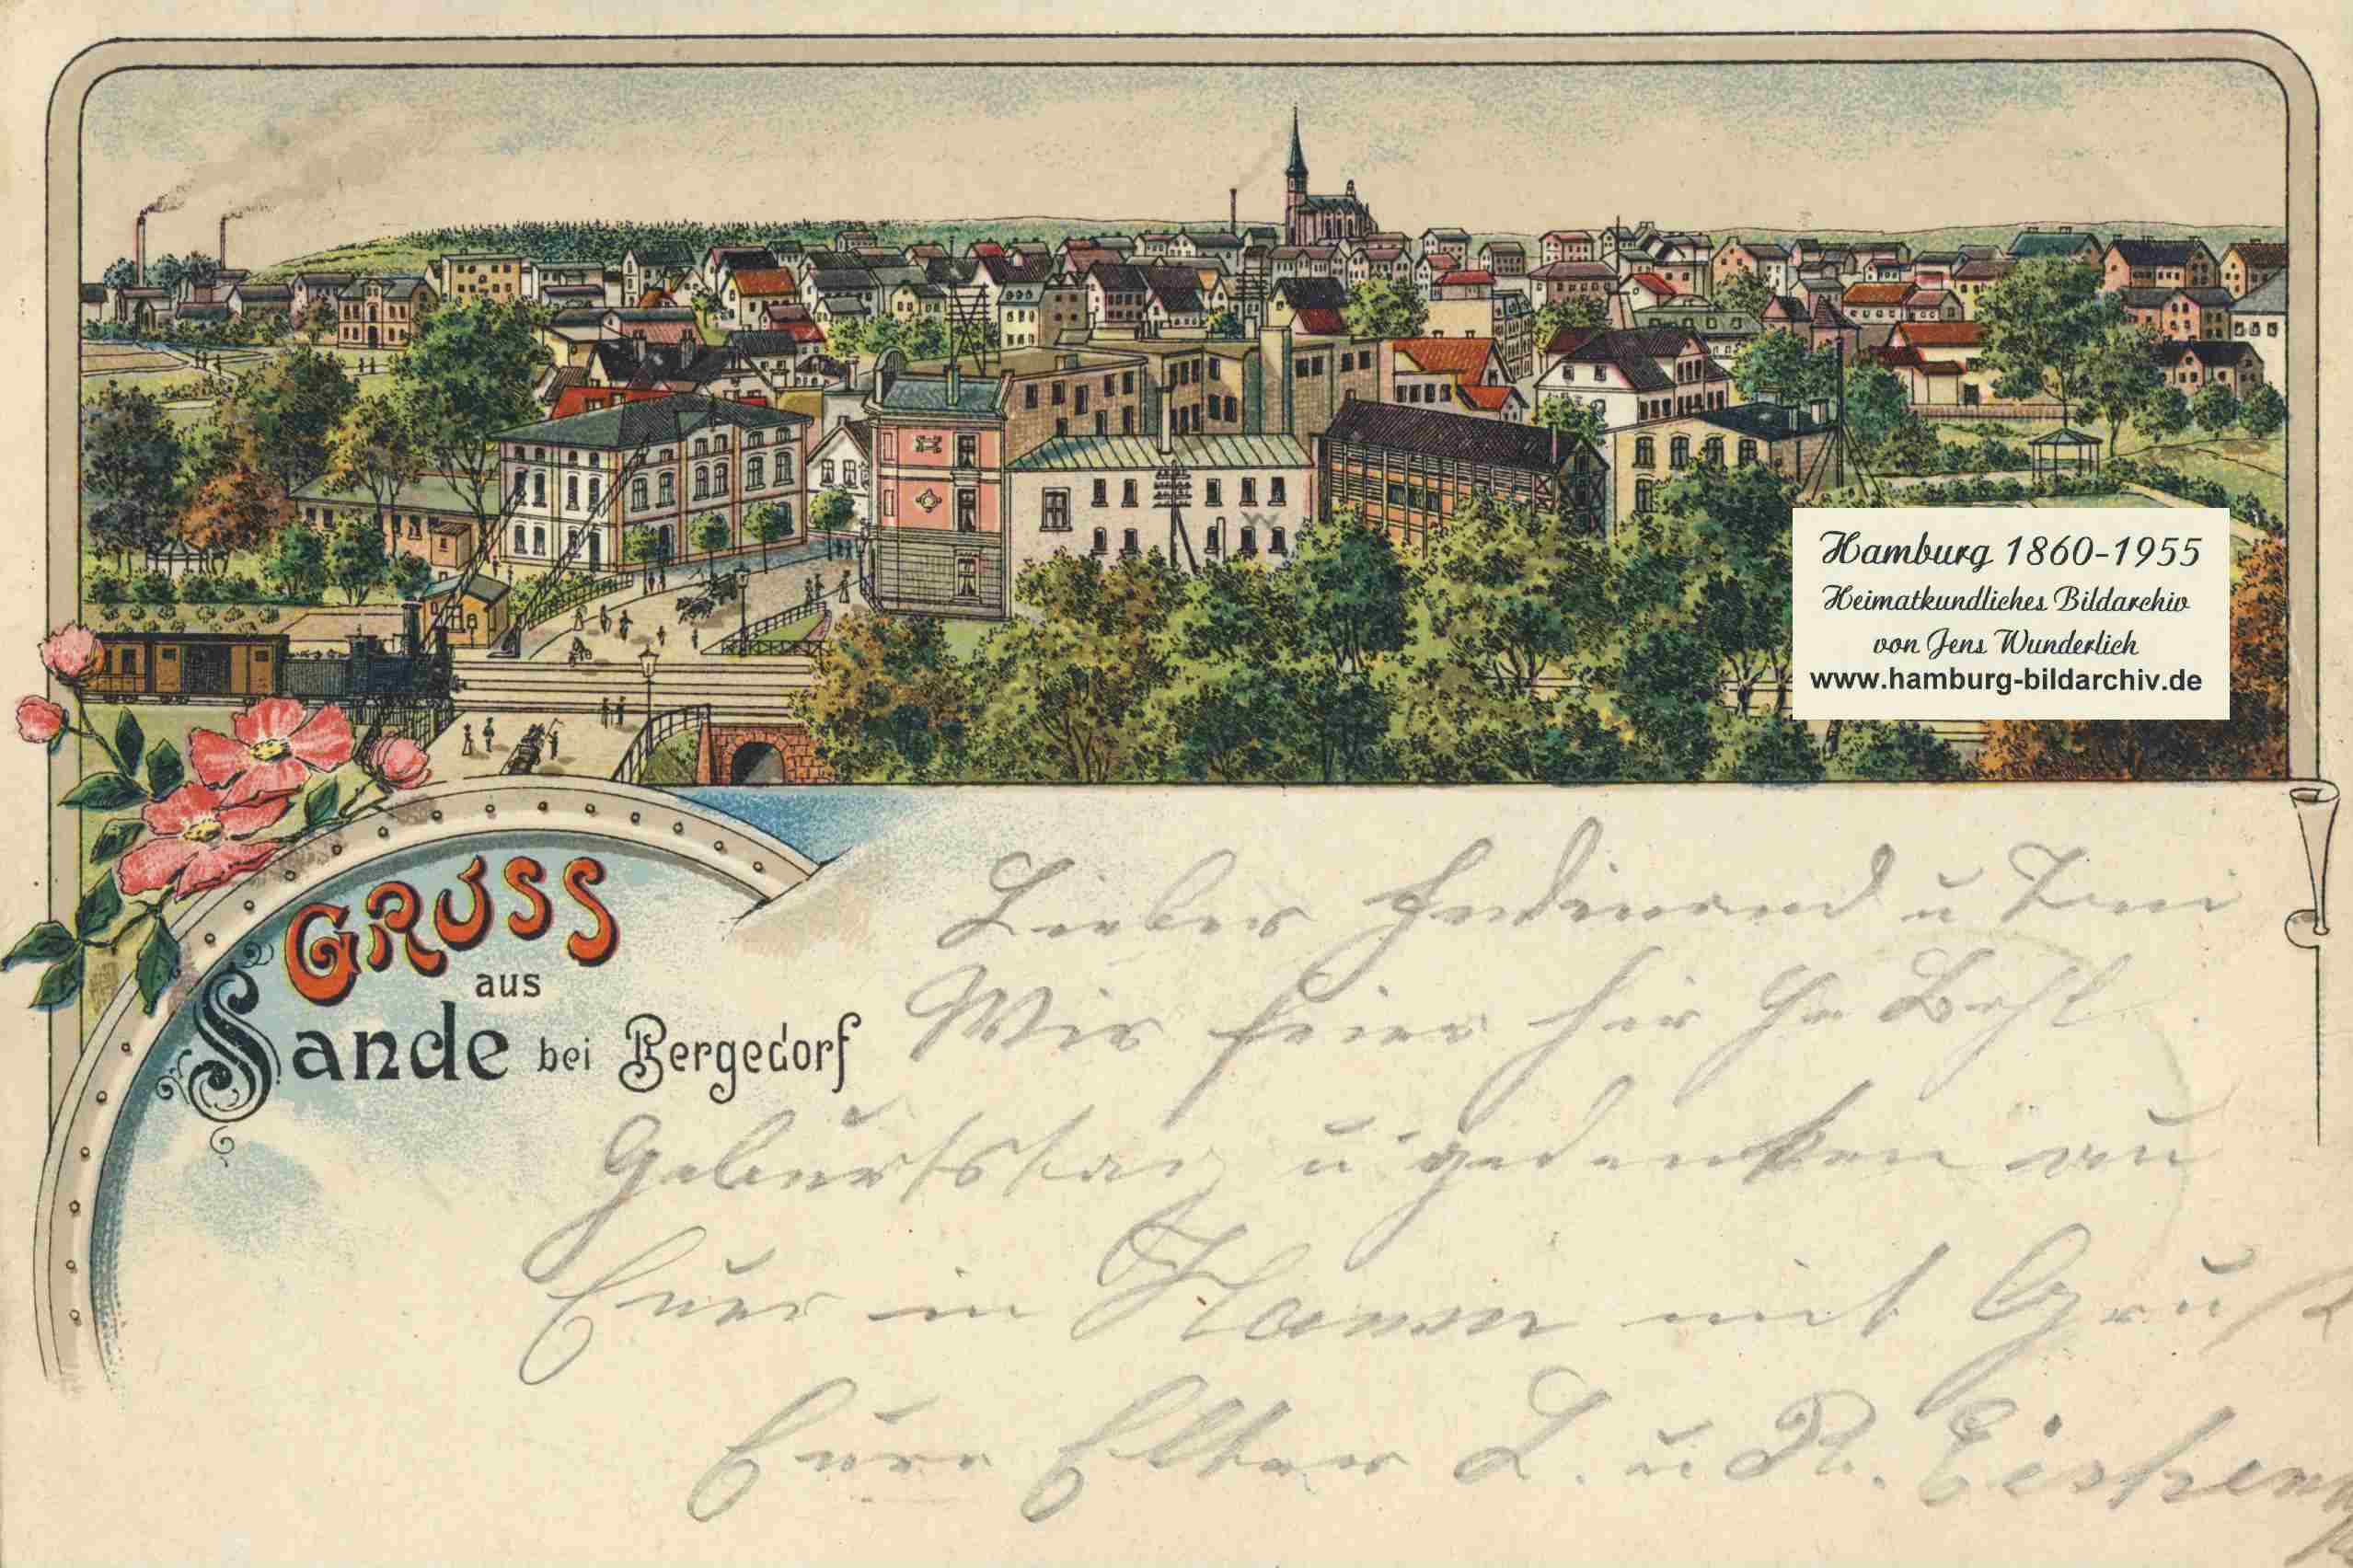 Hamburg 1860-1955
Heimatkundliches Bildarchiv
von Jens Wunderlich
www.hamburg-bildarchiv.de
GRUSS
aus
Sande bei Bergedorf
Lieber Ferdinand u Toni
Wir feier hir
Geburtstag u gedenken an
Euer in mit Gruß
Eure Elter L. u R.